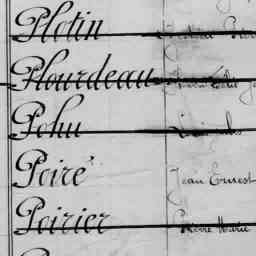 Plotin
Plourdeau
Pohu
Poiré Jean Ernest
Poirier Pierre Marie